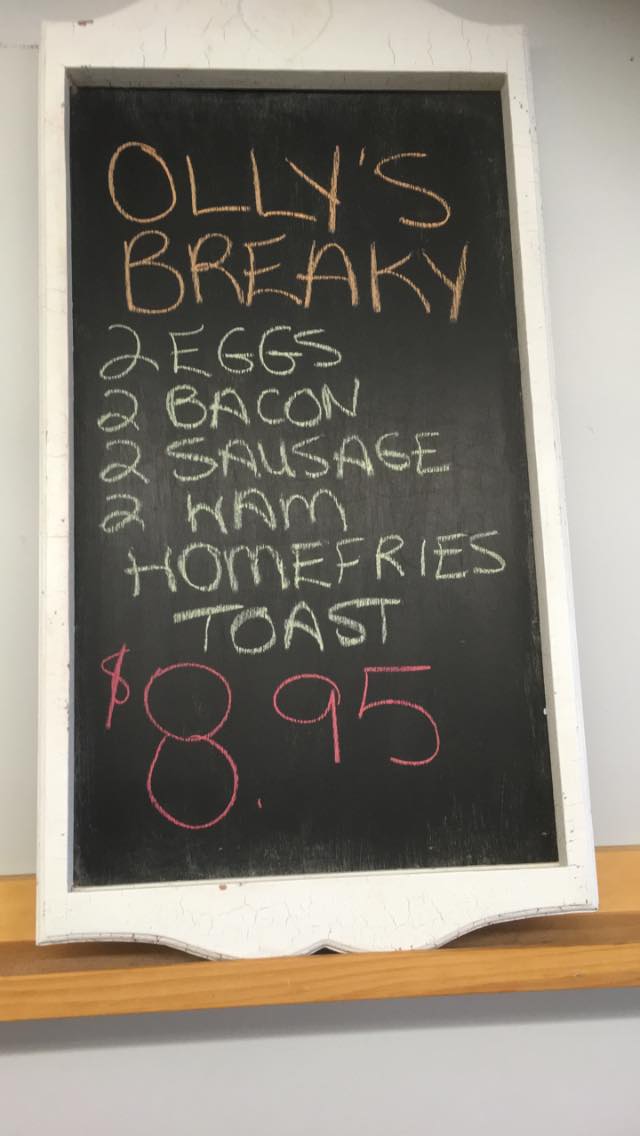 OLLY'S
BREAKY
2 EGGS
2 BACON
2 SAUSAGE
2 HAM
HOMEFRIES
TOAST
$8.95